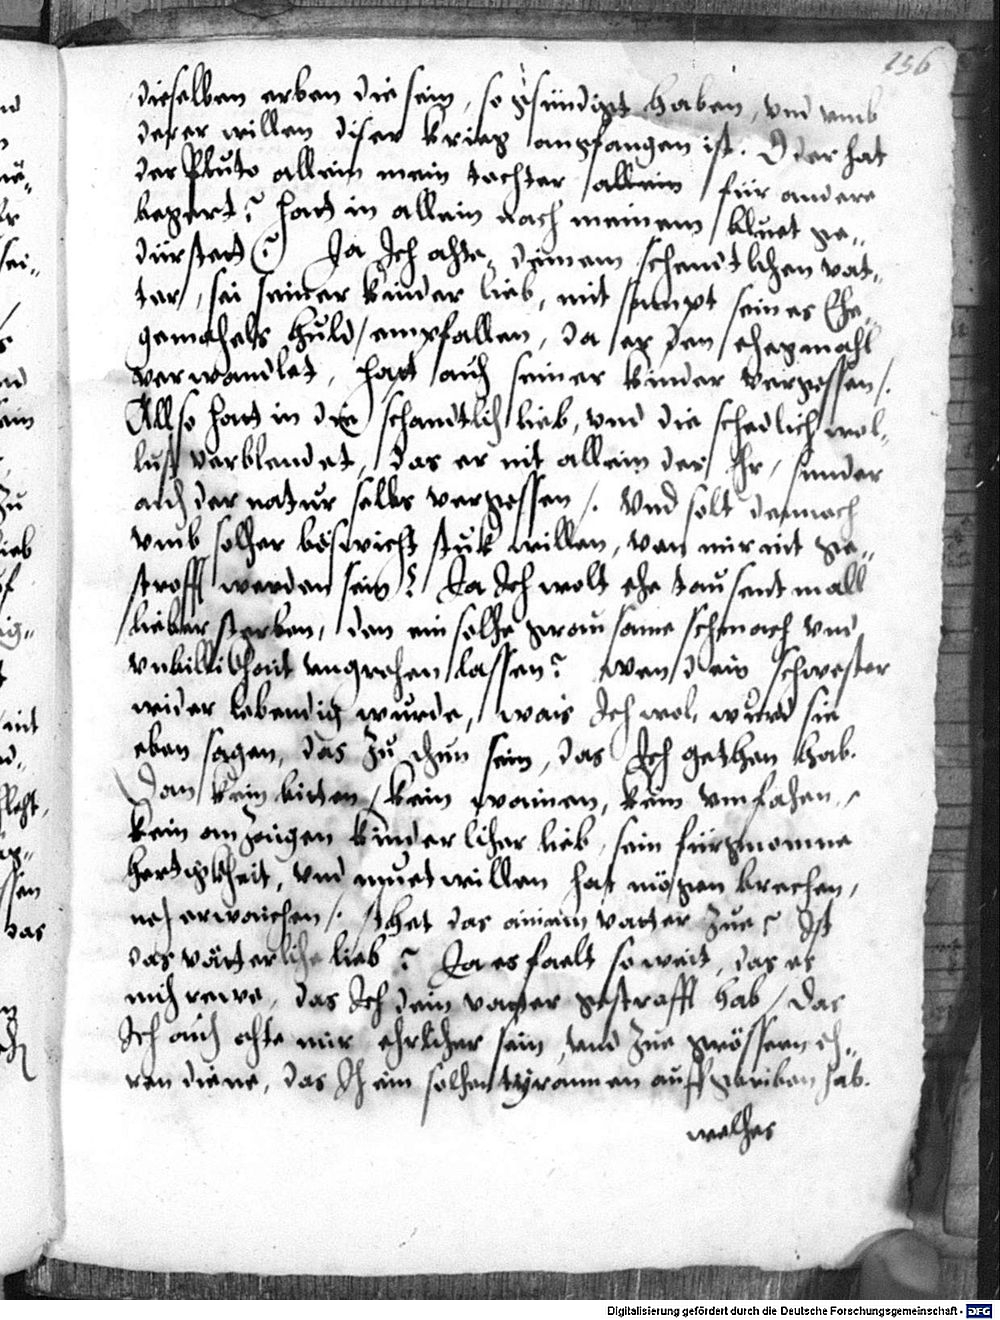 156
dieselben erben die sein, so gsündigt haben, vnd vmb
derer willen diser krieg angfangen ist. Oder hat
der Pluto allein mein tochter allein für andere
begert? hatt in allein nach meinem bluet ge=
dürstett? Ja Ich achte, deinem schendtlichen vat=
ter, sei seiner kinder lieb, mit sampt seines Ehe=
gemahels huld, empfallen, da er den ehegmahl
verwandlet, hatt auch seiner kinder vergessen.
Allso hatt in die schandtlich lieb, vnd die schedlich wol=
lust verblendet, das er nit allein der Ehr, sunder
auch der natur selbs vergessen. Vnd solt dennoch
vmb solher böswicht stuk willen, von mir nit ge=
strafft werden sein? Ja Ich wolt ehe tausent mall
lieber sterben, den ein solhe grousame schmach vnd
vnbillikhait vngrohen lassen? wen dein schwester
wider lebendig wurde, wais Ich wol, wurd sie
eben sagen, das zu thun sein, das Ich gethan hab.
Dan kein bitten, kein wainen, kein vmfahen,
kein anzaigen kinderlicher lieb, sein fürgnomne
hertigkheit, vnd muetwillen hat mögen brechen,
noch erwaichen. sthet das ainem vatter zue? Ist
das vätterliche lieb? Ja es faelt so weit, das es
mich rewe, das Ich dein vatter gestrafft hab, das
Ich auch achte mir ehrlicher sein, vnd zue grössern eh=
ren diene, das Ich ein solhen tÿrannen auffgeriben hab.
welhes
Digitalisierung gefördert durch die Deutsche Forschungsgemeinschaft - DFG